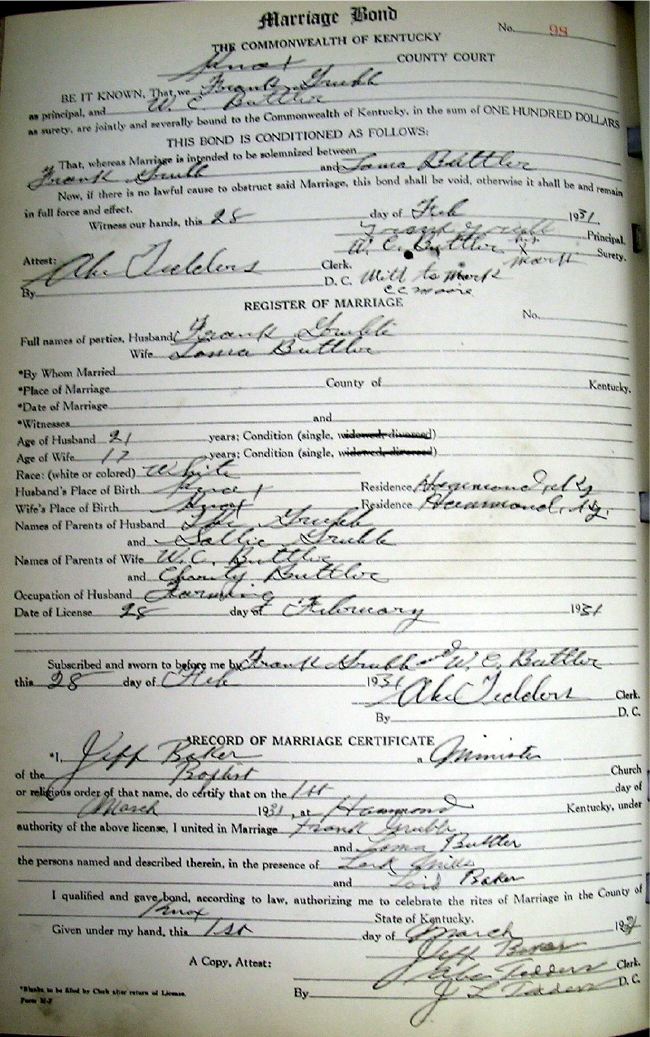 Marriage Bond
No. 98
THE COMMONWEALTH OF KENTUCKY
Knox COUNTY COURT
BE IT KNOWN, That we Frank Grubb
as principal, and W. C. Buttler
as surety, are jointly and severally bound to the Commonwealth of Kentucky, in the sum of ONE HUNDRED DOLLARS
THIS BOND IS CONDITIONED AS FOLLOWS:
That, whereas Marriage is intended to be solemnized between
Frank Grubb and Loma Buttler
Now, if there is no lawful cause to obstruct said Marriage, this bond shall be void, otherwise it shall be and remain
in full force and effect.
Witness our hands, this 28 day of Feb 1931.
Frank Grubb Principal.
W. C. Buttler his X mark Surety.
Attest:
Abe Tedders Clerk. Witt to mark
By D. C. CC Moore
REGISTER OF MARRIAGE
No.
Full names of parties, Husband Frank Grubb
Wife Loma Buttler
*By Whom Married
*Place of Marriage County of Kentucky.
*Date of Marriage
*Witnesses and
Age of Husband 21 years; Condition (single, widowed, divorced)
Age of Wife 17 years; Condition (single, widowed, divorced)
Race: (white or colored) White
Husband's Place of Birth Knox Residence Hammond, Ky
Wife's Place of Birth Knox Residence Hammond, Ky.
Names of Parents of Husband Grubb
and Sallie Grubb
Names of Parents of Wife W. C. Buttler
and Charity Buttler
Occupation of Husband Farming
Date of License 28 day of February 1931
Subscribed and sworn to before me by Frank Grubb and W. C. Buttler
this 28 day of Feb 1931
Abe Tedders Clerk.
By D. C.
RECORD OF MARRIAGE CERTIFICATE
*I, Jeff Baker a Minister
of the Baptist Church
or religious order of that name, do certify that on the 1st day of
March 1931, at Hammond Kentucky, under
authority of the above license, I united in Marriage Frank Grubb
and Loma Buttler
the persons named and described therein, in the presence of Lark Mills
and Baker
I qualified and gave bond, according to law, authorizing me to celebrate the rites of Marriage in the County of
Knox State of Kentucky.
Given under my hand, this 1st day of March 1931
Jeff Baker
A Copy, Attest: Abe Tedders Clerk.
By J L Tedders D. C.
*Blanks to be filed by Clerk after return of License.